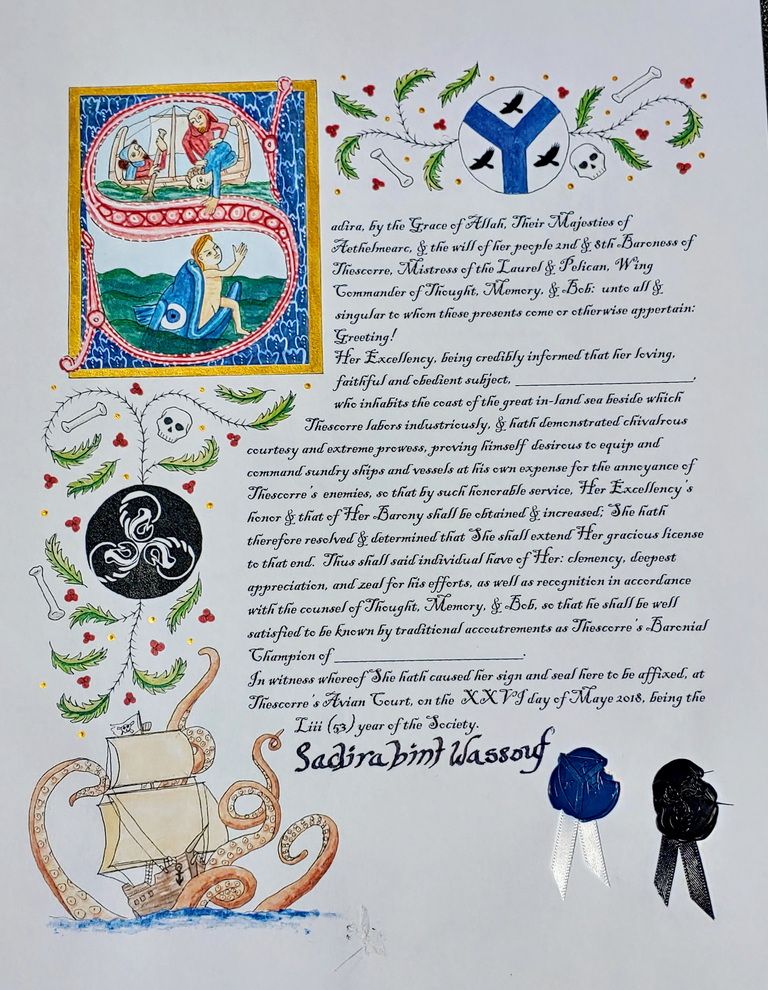 S
adira, by the Grace of Allah, Their Majesties of
Aethelmearc, & the will of her people 2nd & 8th Baroness of
Thescorre, Mistress of the Laurel & Pelican, Wing
Commander of Thought, Memory, & Bob: unto all &
singular to whom these presents come or otherwise appertain:
Greeting!
Her Excellency, being credibly informed that her loving,
faithful and obedient subject, ____________________,
who inhabits the coast of the great in-land sea beside which
Thescorre labors industriously, & hath demonstrated chivalrous
courtesy and extreme prowess, proving himself desirous to equip and
command sundry ships and vessels at his own expense for the annoyance of
Thescorre's enemies, so that by such honorable service, Her Excellency's
honor & that of Her Barony shall be obtained & increased; She hath
therefore resolved & determined that She shall extend Her gracious license
to that end. Thus shall said individual have of Her: clemency, deepest
appreciation, and zeal for his efforts, as well as recognition in accordance
with the counsel of Thought, Memory, & Bob, so that he shall be well
satisfied to be known by traditional accoutrements as Thescorre's Baronial
Champion of ____________________.
In witness whereof She hath caused her sign and seal here to be affixed, at
Thescorre's Avian Court, on the XXVI day of Maye 2018, being the
Liii (53) year of the Society.
Sadira bint Wassouf